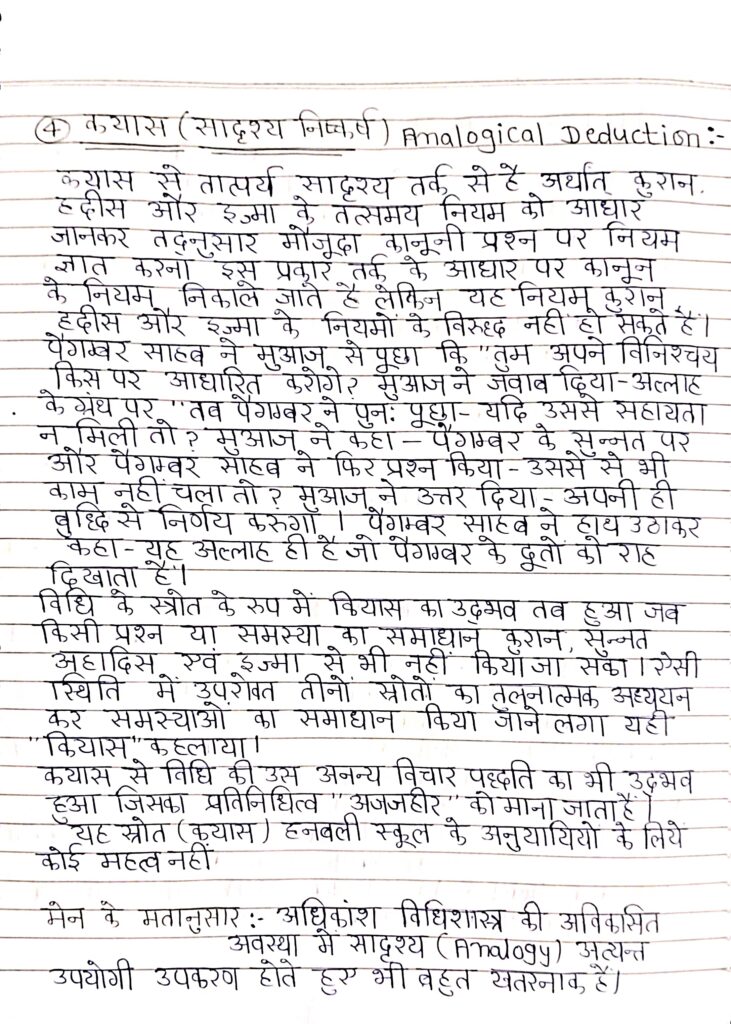 ④ कयास (सादृश्य निष्कर्ष) Analogical Deduction :-
कयास से तात्पर्य सादृश्य तर्क से है अर्थात् कुरान.
हदीस और इज्मा के तत्समय नियम को आधार
जानकर तद्नुसार मौजूदा कानूनी प्रश्न पर नियम
ज्ञात करना इस प्रकार तर्क के आधार पर कानून
के नियम निकाले जाते है लेकिन यह नियम कुरान,
हदीस और इज्मा के नियमों के विरुध्द नहीं हो सकते है।
पैगम्बर साहब ने मुआज से पूछा कि "तुम अपने विनिश्चय
किस पर आधारित करोगे? मुआज ने जवाब दिया-अल्लाह
के ग्रंथ पर "तब पैगम्बर ने पुन: पूछा- यदि उससे सहायता
न मिली तो ? मुआज ने कहा - पैगम्बर के सुन्नत पर
और पैगम्बर साहब ने फिर प्रश्न किया - उससे से भी
काम नहीं चला तो ? मुआज ने उत्तर दिया - अपनी ही
बुध्दि से निर्णय करुगा । पैगम्बर साहब ने हाथ उठाकर
कहा - यह अल्लाह ही है जो पैगम्बर के दूतों को राह
दिखाता है।
विधि के स्त्रोत के रुप में कियास का उद्भव तब हुआ जब
किसी प्रश्न या समस्या का समाधान कुरान, सुन्नत
अहादिस एवं इज्मा से भी नहीं किया जा सका । ऐसी
स्थिति में उपरोक्त तीनों स्रोतों का तुलनात्मक अध्ययन
कर समस्याओं का समाधान किया जाने लगा यही
"कियास" कहलाया।
कयास से विधि की उस अनन्य विचार पध्दति का भी उद्भव
हुआ जिसका प्रतिनिधित्व "अजजहीर" को माना जाता है।
यह स्रोत (कयास) हनबली स्कूल के अनुयायियों के लिये
कोई महत्व नहीं
मेन के मतानुसार :- अधिकांश विधिशास्त्र की अविकसित
अवस्था में सादृश्य (Analogy) अत्यन्त
उपयोगी उपकरण होते हुए भी बहुत खतरनाक है।